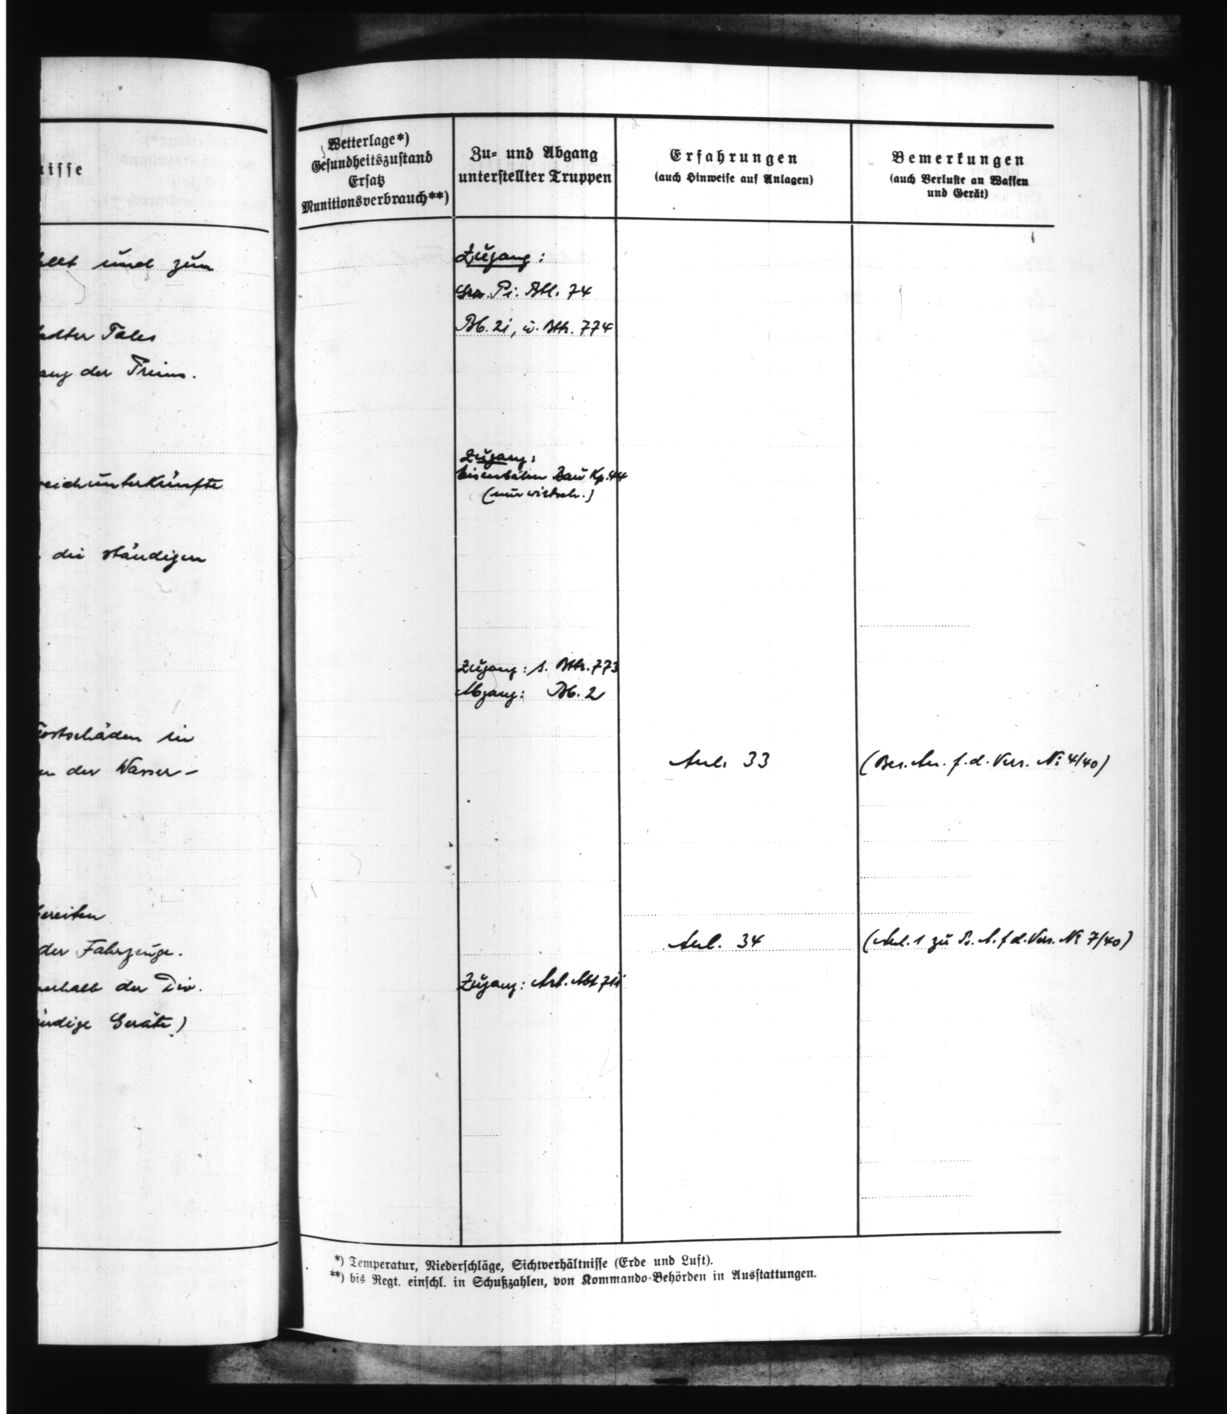 nisse
und zum
Tales
ang der Trims.
reichunterkünfte
die ständigen
Frostschäden in
en der Wasser-
bereiten
der Fahrzeuge.
innerhalb der Div.
Geräte)
Wetterlage*)
Gesundheitszustand
Ersatz
Munitionsverbrauch**)
Zu- und Abgang
unterstellter Truppen
Zugang:
Pi. Btl. 74
Bb. 21, Bttr. 774
Zugang:
Eisenbahn Bau Kp. 44
(nur wirtsch.)
Zugang: s. Bttr. 773
Abgang: Bb. 2
Zugang: Art. Abt 711
Erfahrungen
(auch Hinweise auf Anlagen)
Anl. 33
Anl. 34
Bemerkungen
(auch Verluste an Waffen
und Gerät)
(Bes. An. f. d. Vers. No 4/40)
(Anl. 1 zu B. A. f. d. Vers. No 7/40)
*) Temperatur, Niederschläge, Sichtverhältnisse (Erde und Luft).
**) bis Regt. einschl. in Schußzahlen, von Kommando-Behörden in Ausstattungen.